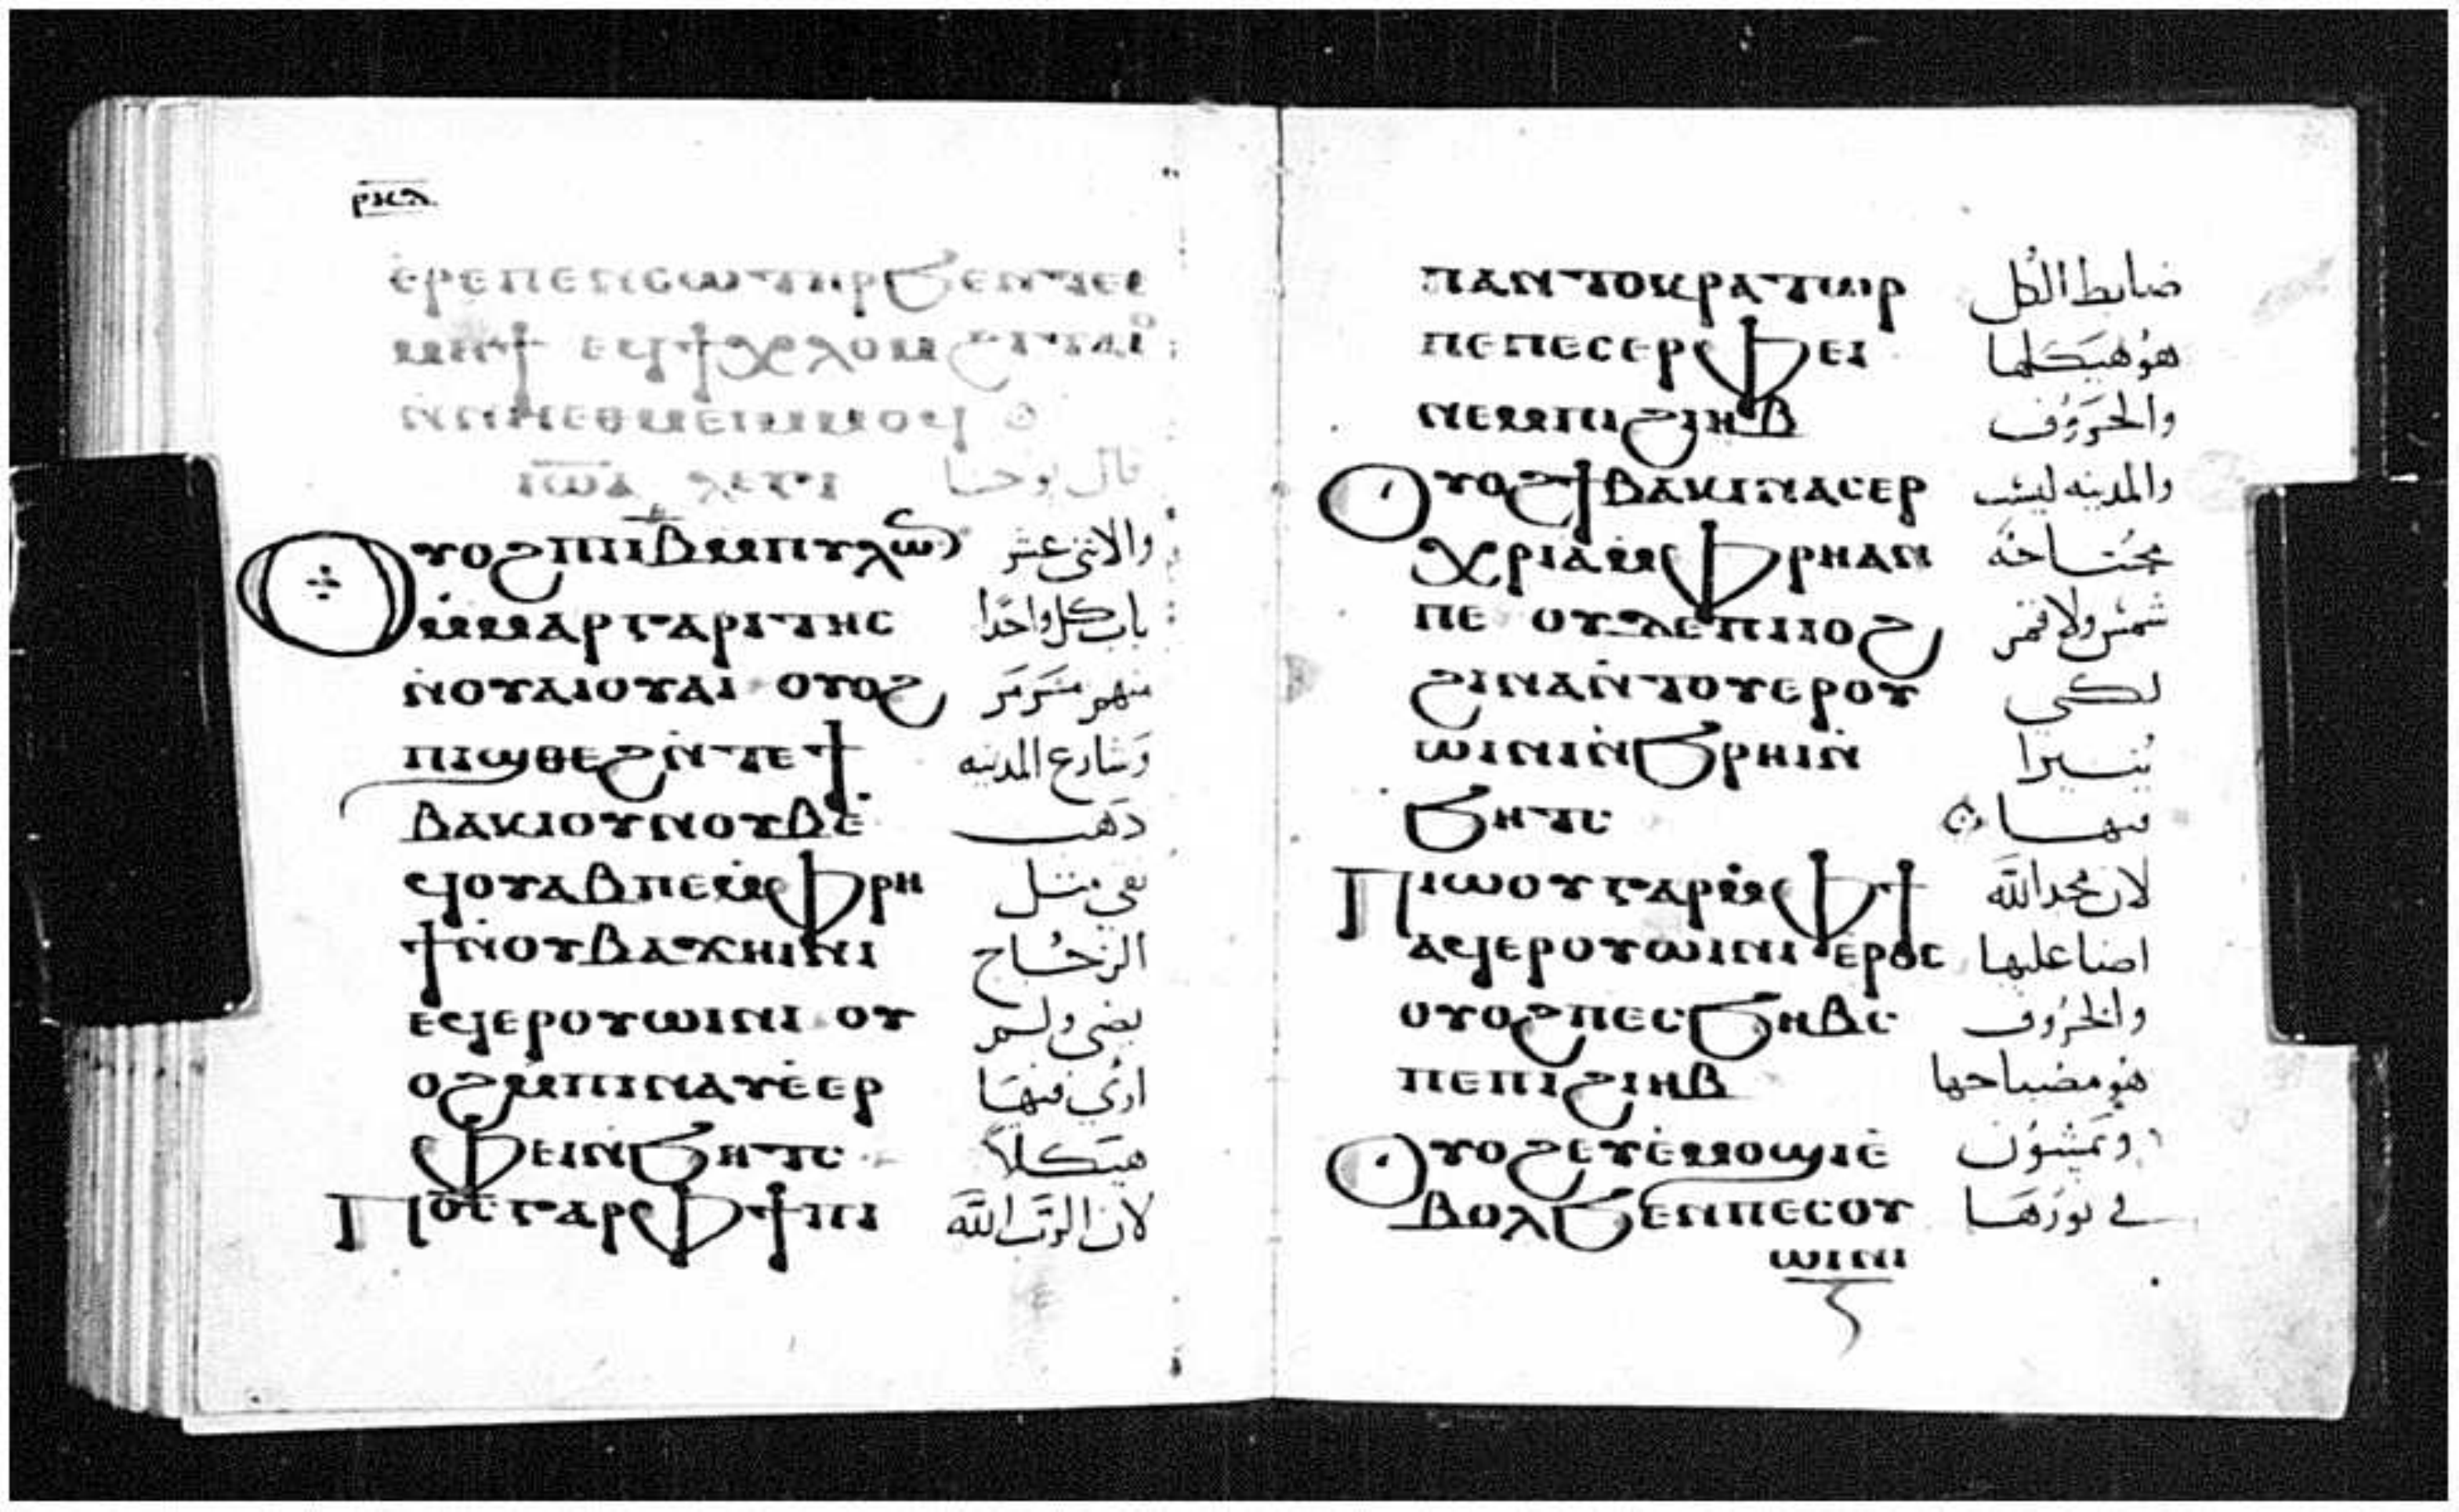 ⲉⲣⲉⲡⲉⲛⲥⲱⲧⲏⲣϧⲉⲛⲧⲉϥ
ⲙⲏϯ ⲉϥϯⲭⲗⲟⲙ
ⲛⲛⲏⲉⲑⲙⲉⲓⲙⲙⲟϥ
ⲓⲱⲁ ⲗⲉⲅⲓ قال يوحنا
ⲟⲩⲟϩⲡⲓⲓⲃ̅ⲙⲡⲩⲗⲱ̅ والاثنى عشر
ⲙ̀ⲙⲁⲣⲅⲁⲣⲓⲧⲏⲥ باب كل واحدا
ⲛ̀ⲟⲩⲁⲓⲟⲩⲁⲓ ⲟⲩⲟϩ منهم من مَر
ⲡⲓϣⲑⲉϩⲛ̀ⲧⲉϯ وشارع المدينه
ⲃⲁⲕⲓⲟⲩⲛⲟⲩⲃⲉ̀ دَهب
ϥⲟⲩⲁⲃⲡⲉⲙ̀ⲫⲣⲏ نقى مثل
ϯⲛ̀ⲟⲩⲃⲁϫⲏⲓⲛⲓ الزجاج
ⲉϥⲉⲣⲟⲩⲱⲓⲛⲓ ⲟⲩ يضى ولم
ⲟϩⲙ̀ⲡⲓⲛⲁⲩⲉ̀ⲉⲣ ارى فيهَا
ⲫⲉⲓⲛ̀ϧⲏⲧⲥ هيكلاً
ⲡⲟ̅ⲥ̅ⲅⲁⲣⲫϯⲡⲓ لان الرَب اللَّه
ⲡⲁⲛⲧⲟⲕⲣⲁⲧⲱⲣ ضابط الكل
ⲡⲉⲡⲉⲥⲉⲣⲫⲉⲓ هوُ هَيكلها
ⲛⲉⲙⲡⲓϩⲓⲏⲃ والخروف
ⲟⲩⲟϩϯⲃⲁⲕⲓⲛⲁⲥⲉⲣ والمدينه ليست
ⲭⲣⲓⲁⲙ̀ⲫⲣⲏⲁⲛ محُتاجَه
ⲡⲉ ⲟⲩⲇⲉⲡⲓⲓⲟϩ شمسُ ولا قمر
ϩⲓⲛⲁⲛ̀ⲧⲟⲩⲉⲣⲟⲩ لكي
ⲱⲓⲛⲓⲛ̀ϧⲣⲏⲓⲛ̀ يُنيرا
ϧⲏⲧⲥ فيها
ⲡⲓⲱⲟⲩⲅⲁⲣⲙ̀ⲫϯ لان مجد اللَّه
ⲁϥⲉⲣⲟⲩⲱⲓⲛⲓ ⲉⲣⲟⲥ اضا عليها
ⲟⲩⲟϩⲡⲉⲥϧⲏⲃⲥ والخرُوف
ⲡⲉⲡⲓϩⲓⲏⲃ هو مصباحها
ⲟⲩⲟϩⲉⲩⲉ̀ⲙⲟϣⲓⲉ̀ ويَمشوُن
ⲃⲟⲗϧⲉⲛⲡⲉⲥⲟⲩ في نورَهَا
ⲱⲓⲛⲓ